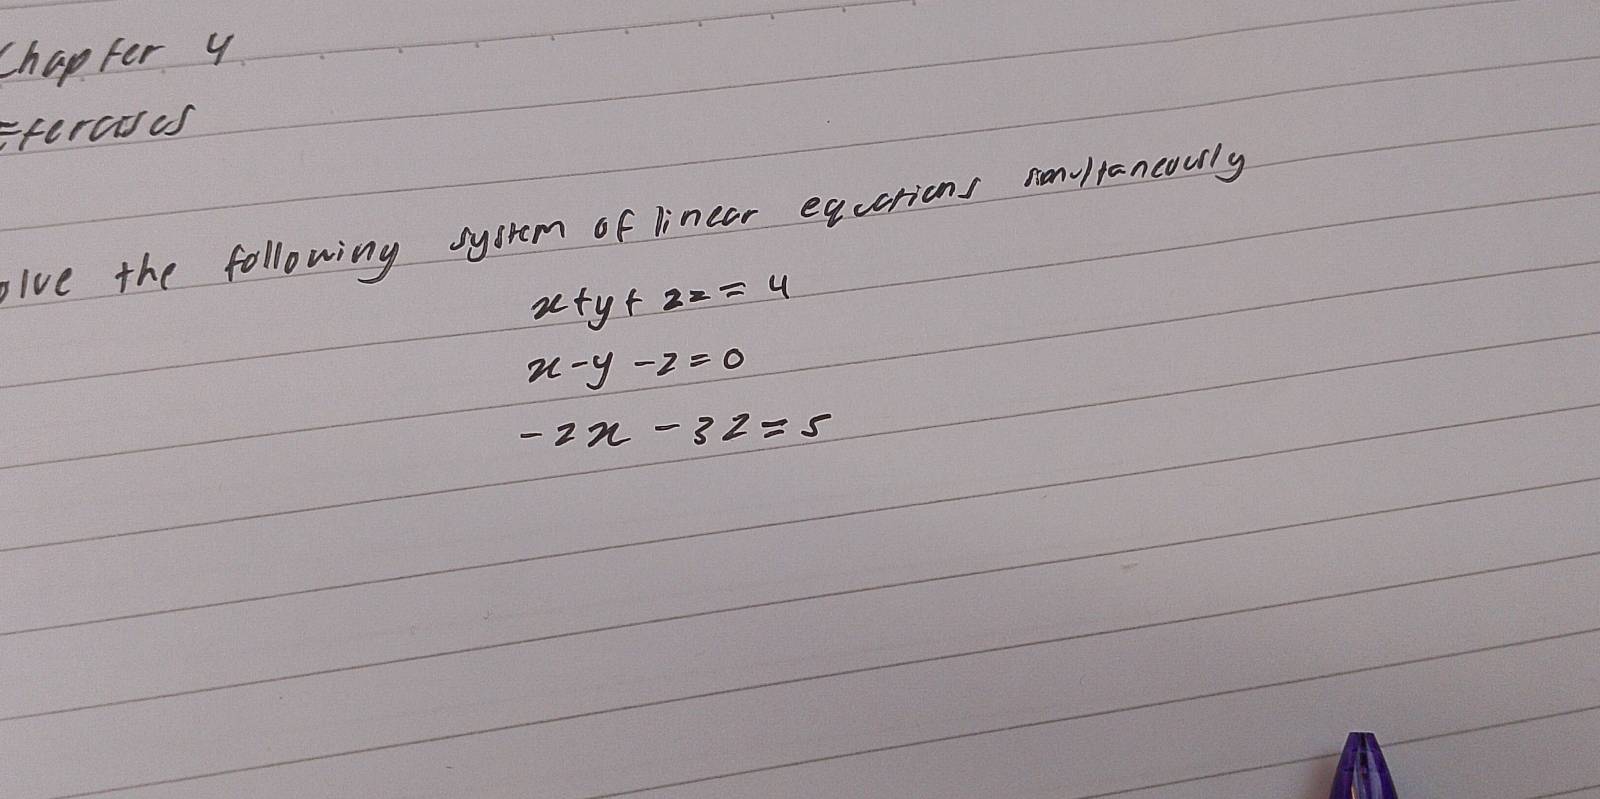 Chapter 4
Exercises
olve the following system of linear equations simultaneously
x+y+2z=4
x-y-z=0
-2x-3z=5